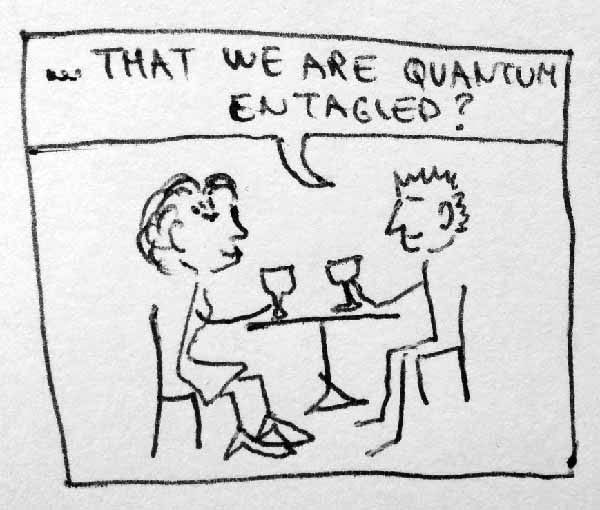 ... THAT WE ARE QUANTUM
ENTAGLED?